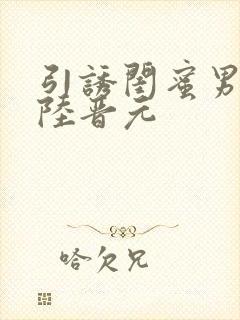 引誘閨蜜男
陸晋元
哈欠兄